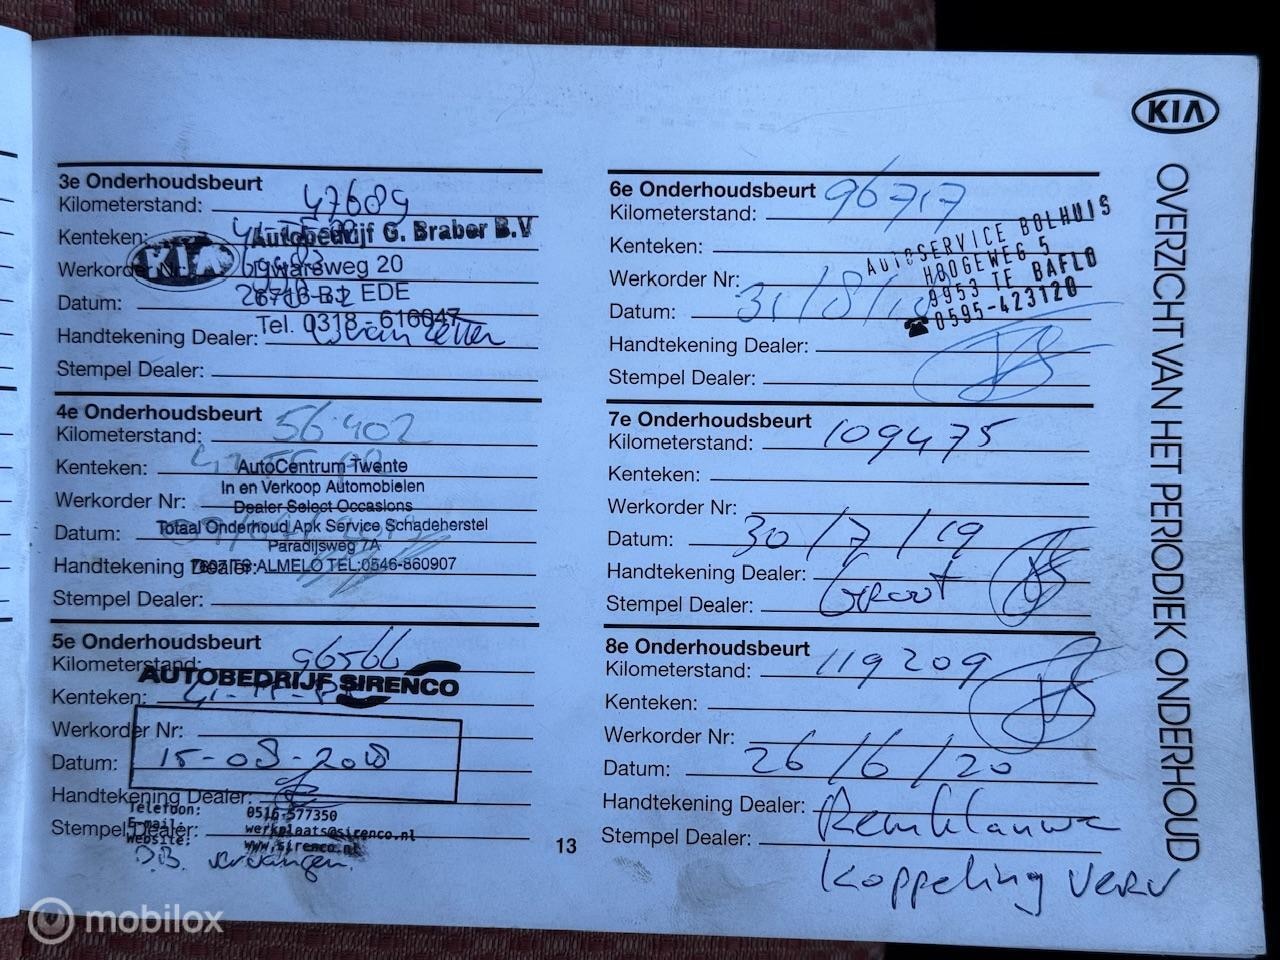 KIA
OVERZICHT VAN HET PERIODIEK ONDERHOUD
3e Onderhoudsbeurt
Kilometerstand: 47689
Kenteken:
Autobedrijf G. Braber B.V
KIA
Werkorder Nr:
weg 20
Datum:
6716 BJ EDE
Tel. 0318 - 616047
Handtekening Dealer:
Stempel Dealer:
4e Onderhoudsbeurt
Kilometerstand: 56.402
Kenteken:
AutoCentrum Twente
In en Verkoop Automobielen
Werkorder Nr:
Dealer Select Occasions
Datum:
Totaal Onderhoud Apk Service Schadeherstel
Paradijsweg 7A
Handtekening Dealer:
ALMELO TEL:0546-860907
Stempel Dealer:
5e Onderhoudsbeurt
Kilometerstand: 96566
AUTOBEDRIJF SIRENCO
Kenteken:
Werkorder Nr:
Datum: 15-08-2018
Handtekening Dealer:
Telefoon: 0516-577350
E-mail: werkplaats@sirenco.nl
Stempel Dealer:
Website: www.sirenco.nl
D.B. vervangen.
13
6e Onderhoudsbeurt
Kilometerstand: 96717
Kenteken:
AUTOSERVICE BOLHUIS
HOOGEWEG 5
9953 TE BAFLO
0595-423120
Werkorder Nr:
Datum: 31/8/18
Handtekening Dealer:
Stempel Dealer:
7e Onderhoudsbeurt
Kilometerstand: 109475
Kenteken:
Werkorder Nr:
Datum: 30/7/19
Handtekening Dealer:
Groot
Stempel Dealer:
8e Onderhoudsbeurt
Kilometerstand: 119209
Kenteken:
Werkorder Nr:
Datum: 26/6/20
Handtekening Dealer:
Remklauwe
Stempel Dealer:
Koppeling verv
mobilox